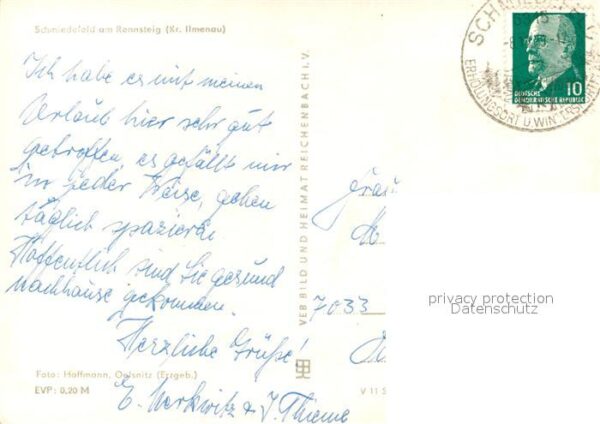 Schmiedefeld am Rennsteig (Kr. Ilmenau)
Ich habe es mit meinen
Urlaub hier sehr gut
getroffen, es gefällt mir
in jeder Weise, gehen
täglich spazieren.
Hoffentlich sind Sie gesund
nachhause gekommen.
Herzliche Grüße!
E. Merkwitz & J. Thieme
Foto: Hoffmann, Oelsnitz (Erzgeb.)
EVP: 0,20 M
VEB BILD UND HEIMAT REICHENBACH I. V.
V 11 5
SCHMIEDEFELD
ERHOLUNGSORT U. WINTERSPORT
10
DEUTSCHE
DEMOKRATISCHE REPUBLIK
Frau
7033
privacy protection
Datenschutz